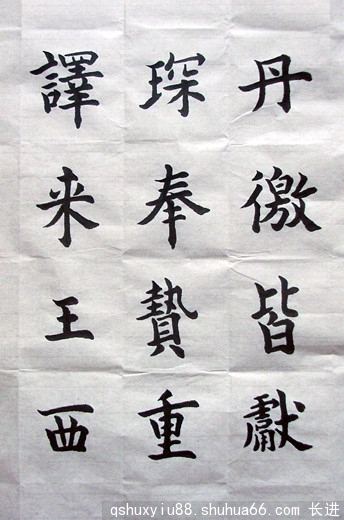 丹徼皆獻
琛奉贄重
譯来王西
qshuxyiu88. shuhua66. com 长进